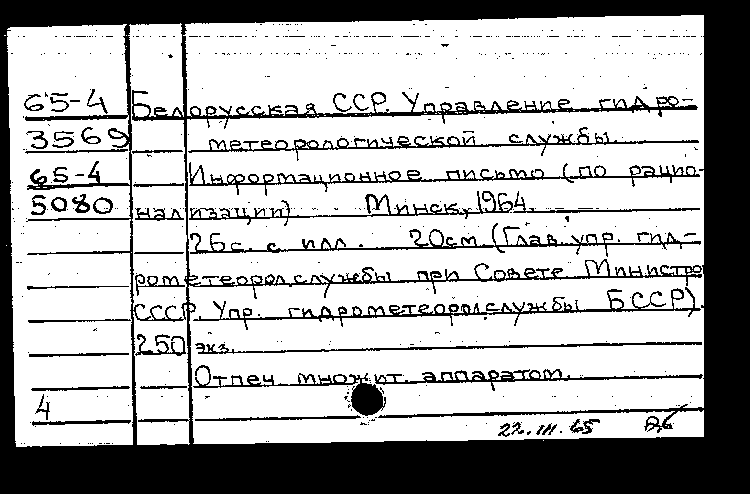 65-4 Белорусская ССР. Управление гидро-
3569 метеорологической службы.
65-4 Информационное письмо (по рацио-
5080 нализации). Минск, 1964.
26с. с илл. 20см (Глав. упр. гид-
рометеорол. службы при Совете Министров
СССР. Упр. гидрометеорол. службы БССР).
250 экз.
Отпеч. множит. аппаратом.
4
22.III.65